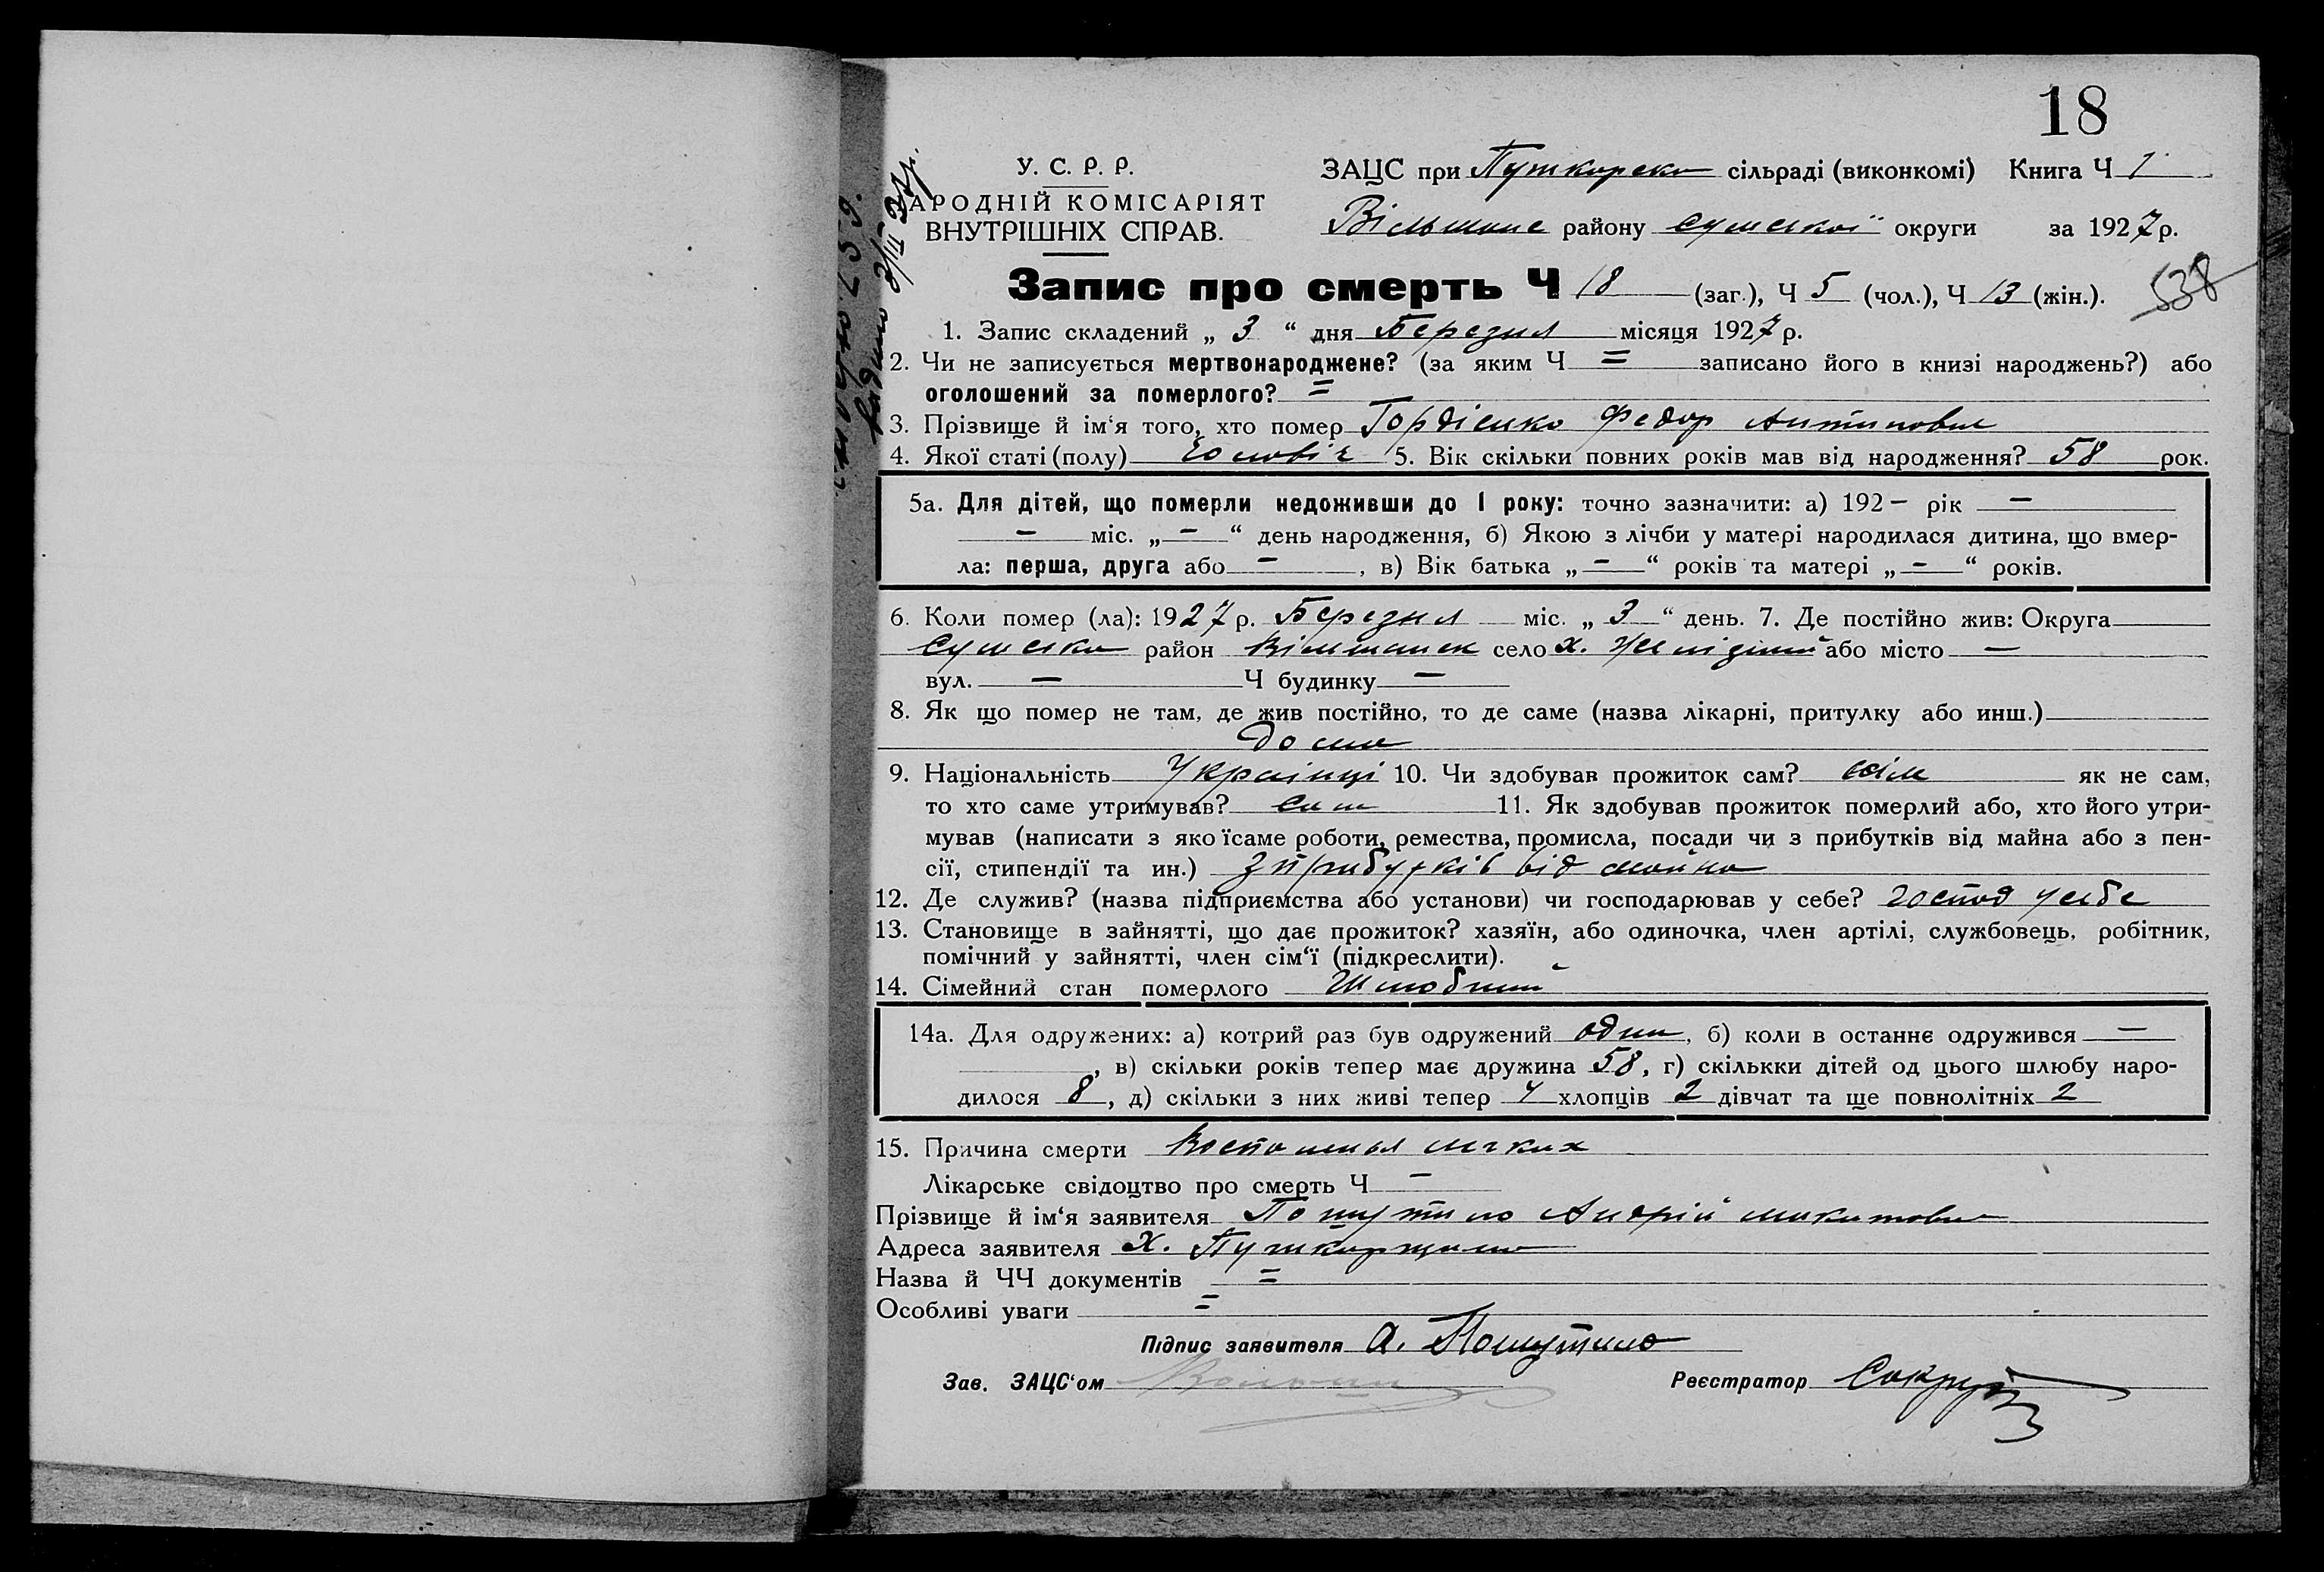 18
У. С. Р. Р.
АРОДНІЙ КОМІСАРІЯТ
ВНУТРІШНІХ СПРАВ.
ЗАЦС при Пушкарско сільраді (виконкомі) Книга Ч 1
Вільшане району сумської округи за 1927 р.
538
Запис про смерть Ч 18 (заг.), Ч 5 (чол.), Ч 13 (жін.).
1. Запис складений „ 3 “ дня Березня місяця 1927 р.
2. Чи не записується мертвонароджене? (за яким Ч = записано його в книзі народжень?) або
оголошений за померлого? =
3. Прізвище й ім‘я того, хто помер Гордієнко Федор Антипович
4. Якої статі (полу) чоловік 5. Вік скільки повних років мав від народження? 58 рок.
5а. Для дітей, що померли недоживши до 1 року: точно зазначити: а) 192 – рік –
– міс. „ – “ день народження, б) Якою з лічби у матері народилася дитина, що вмер-
ла: перша, друга або – , в) Вік батька „ – “ років та матері „ – “ років.
6. Коли помер (ла): 1927 р. Березня міс. „ 3 “ день. 7. Де постійно жив: Округа
Сумська район Вільшанск село х. або місто –
вул. – Ч будинку –
8. Як що помер не там, де жив постійно, то де саме (назва лікарні, притулку або инш.)
дома
9. Національність Українці 10. Чи здобував прожиток сам? сам як не сам,
то хто саме утримував? сам 11. Як здобував прожиток померлий або, хто його утри-
мував (написати з яко їсаме роботи, ремества, промисла, посади чи з прибутків від майна або з пен-
сії, стипендії та ин.) З прибутків від майна
12. Де служив? (назва підприємства або установи) чи господарював у себе? господ у себе
13. Становище в зайнятті, що дає прожиток? хазяїн, або одиночка, член артілі, службовець, робітник,
помічний у зайнятті, член сім‘ї (підкреслити).
14. Сімейний стан померлого Шлюбний
14а. Для одружених: а) котрий раз був одружений один, б) коли в останнє одружився –
, в) скільки років тепер має дружина 58, г) скількки дітей од цього шлюбу наро-
дилося 8, д) скільки з них живі тепер 4 хлопців 2 дівчат та ще повнолітніх 2
15. Причина смерти Воспаленья легких
Лікарське свідоцтво про смерть Ч –
Прізвище й ім‘я заявителя Андрій Микитович
Адреса заявителя х. Пушкарщина
Назва й ЧЧ документів =
Особливі уваги =
Підпис заявителя А.
Зав. ЗАЦС‘ом
Реєстратор